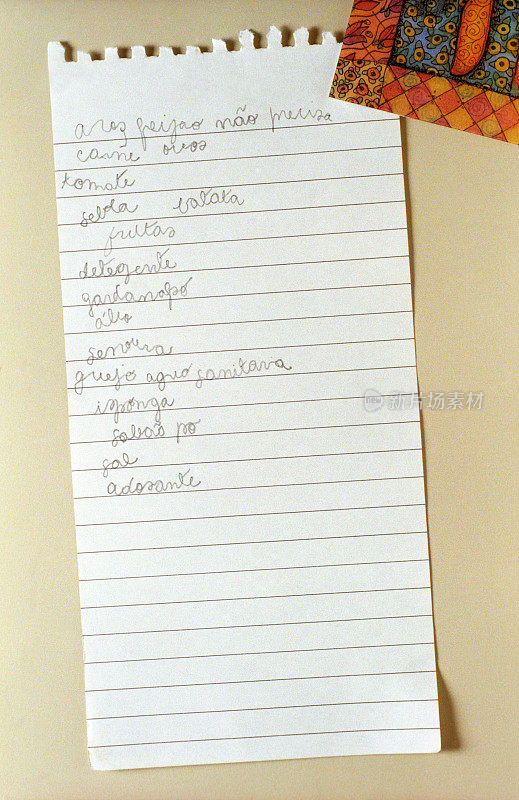 aroz feijao não precisa
carne ovos
tomate
sebola batata
frutas
detegente
gardanapo
álio
senoura
queijo agua sanitaria
isponga
sabão po
sal
adosante
iStock